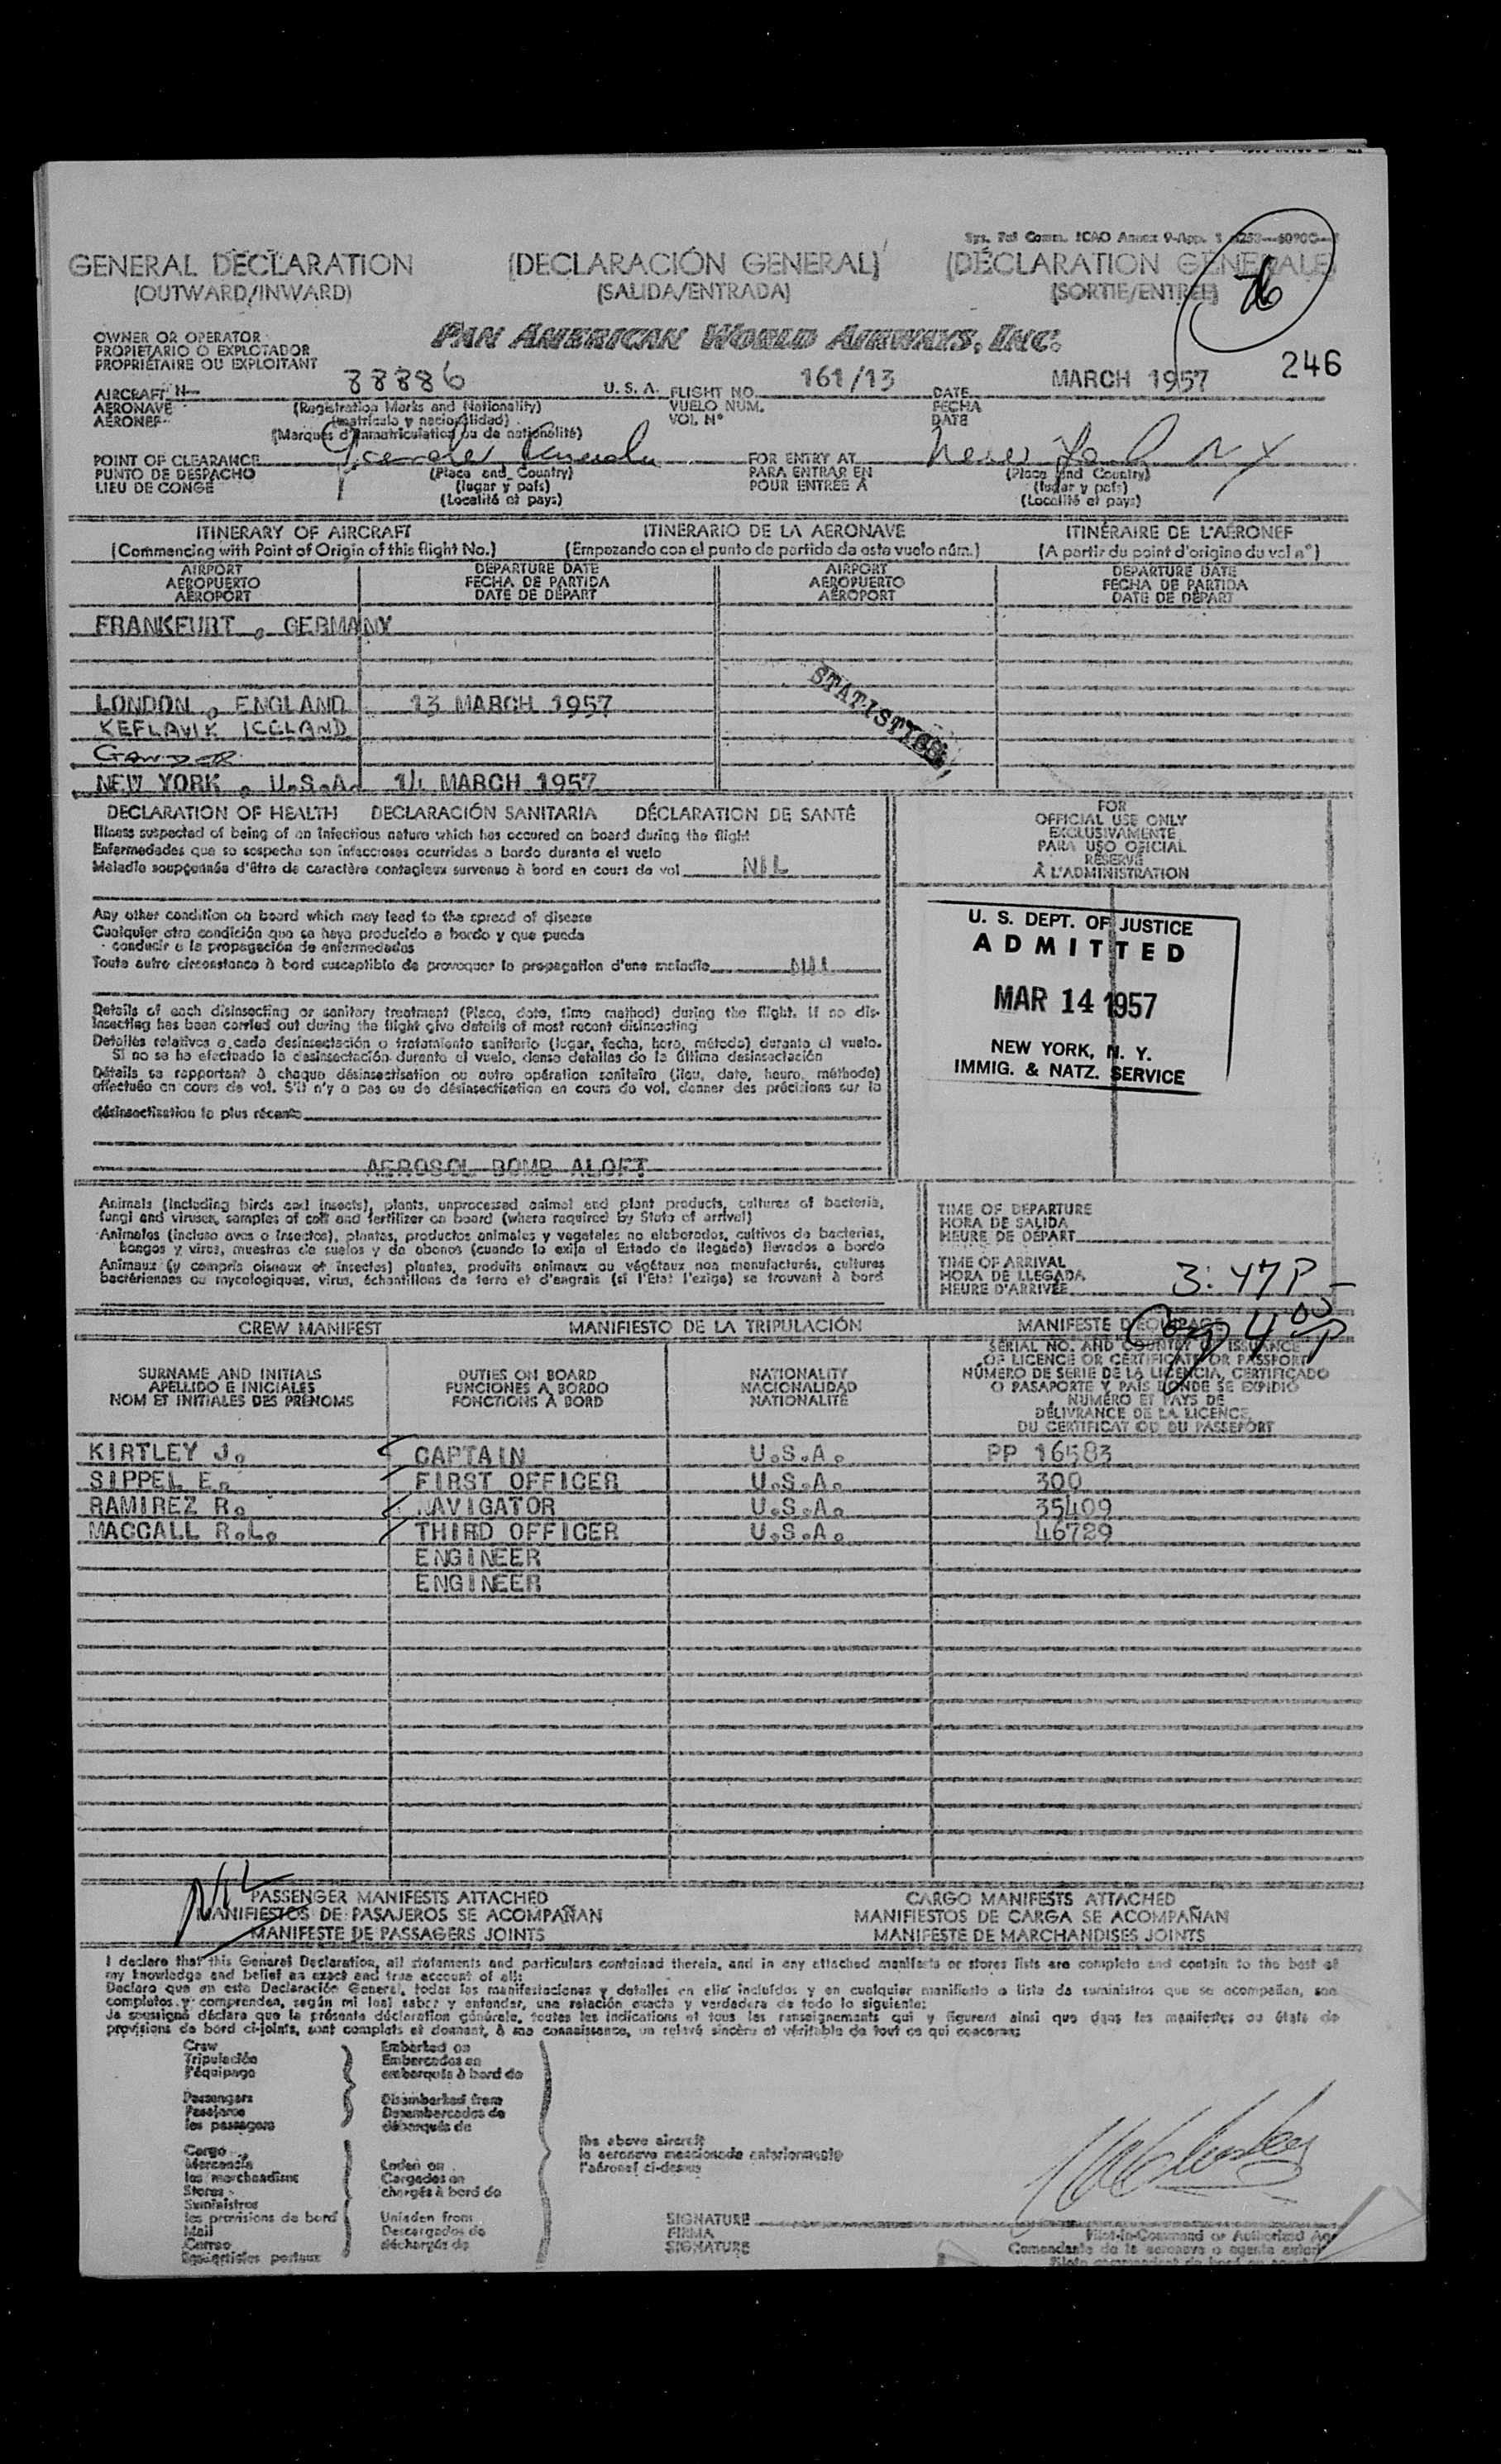 Sys. Pal Comm. ICAO Annex 9-App. 1
GENERAL DECLARATION (DECLARACIÓN GENERAL) (DÉCLARATION GENERALE)
(OUTWARD/INWARD) (SALIDA/ENTRADA) (SORTIE/ENTREE)
76
OWNER OR OPERATOR
PROPIETARIO O EXPLOTADOR
PROPRIÉTAIRE OU EXPLOITANT
PAN AMERICAN WORLD AIRWAYS, INC.
246
AIRCRAFT N- 88886 U. S. A. FLIGHT NO. 161/13 DATE MARCH 1957
AERONAVE (Registration Marks and Nationality) VUELO NUM. FECHA
AÉRONEF (matrícula y nacionalidad) VOL Nº DATE
(Marques d'immatriculation ou de nationalité)
POINT OF CLEARANCE FOR ENTRY AT New York NY
PUNTO DE DESPACHO (Place and Country) PARA ENTRAR EN (Place and Country)
LIEU DE CONGÉ (lugar y país) POUR ENTRÉE À (lugar y país)
(Localité et pays) (Localité et pays)
ITINERARY OF AIRCRAFT ITINERARIO DE LA AERONAVE ITINÉRAIRE DE L'AÉRONEF
(Commencing with Point of Origin of this flight No.) (Empezando con el punto de partida de este vuelo núm.) (A partir du point d'origine du vol nº)
AIRPORT DEPARTURE DATE AIRPORT DEPARTURE DATE
AEROPUERTO FECHA DE PARTIDA AEROPUERTO FECHA DE PARTIDA
AÉROPORT DATE DE DÉPART AÉROPORT DATE DE DÉPART
FRANKFURT , GERMANY
LONDON , ENGLAND 13 MARCH 1957
STATISTICS
KEFLAVIK ICELAND
GANDER
NEW YORK , U.S.A. 14 MARCH 1957
DECLARATION OF HEALTH DECLARACIÓN SANITARIA DÉCLARATION DE SANTÉ
Illness suspected of being of an infectious nature which has occured on board during the flight
Enfermedades que se sospecha son infecciosas ocurridas a bordo durante el vuelo
Maladie soupçonnée d'être de caractère contagieux survenue à bord en cours de vol NIL
FOR
OFFICIAL USE ONLY
EXCLUSIVAMENTE
PARA USO OFICIAL
RÉSERVÉ
À L'ADMINISTRATION
Any other condition on board which may lead to the spread of disease
Cualquier otra condición que se haya producido a bordo y que pueda
conducir a la propagación de enfermedades
Toute autre circonstance à bord susceptible de provoquer la propagation d'une maladie NIL
U. S. DEPT. OF JUSTICE
ADMITTED
MAR 14 1957
NEW YORK, N. Y.
IMMIG. & NATZ. SERVICE
Details of each disinsecting or sanitary treatment (Place, date, time method) during the flight. If no dis-
insecting has been carried out during the flight give details of most recent disinsecting
Detalles relativos a cada desinsectación o tratamiento sanitario (lugar, fecha, hora, método) durante el vuelo.
Si no se ha efectuado la desinsectación durante el vuelo, dense detalles de la última desinsectación
Détails se rapportant à chaque désinsectisation ou autre opération sanitaire (lieu, date, heure, méthode)
effectuée en cours de vol. S'il n'y a pas eu de désinsectisation en cours de vol, donner des précisions sur la
désinsectisation la plus récente
AEROSOL BOMB ALOFT
Animals (including birds and insects), plants, unprocessed animal and plant products, cultures of bacteria,
fungi and viruses, samples of soil and fertilizer on board (where required by State of arrival)
Animales (incluso aves o insectos), plantas, productos animales y vegetales no elaborados, cultivos de bacterias,
hongos y virus, muestras de suelos y de abonos (cuando lo exija el Estado de llegada) llevados a bordo
Animaux (y compris oiseaux et insectes) plantes, produits animaux ou végétaux non manufacturés, cultures
bactériennes ou mycologiques, virus, échantillons de terre et d'engrais (si l'État l'exige) se trouvant à bord
TIME OF DEPARTURE
HORA DE SALIDA
HEURE DE DÉPART
TIME OF ARRIVAL
HORA DE LLEGADA
HEURE D'ARRIVÉE 3:47P
4 00 P
CREW MANIFEST MANIFIESTO DE LA TRIPULACIÓN MANIFESTE D'ÉQUIPAGE
SURNAME AND INITIALS DUTIES ON BOARD NATIONALITY
APELLIDO E INICIALES FUNCIONES A BORDO NACIONALIDAD
NOM ET INITIALES DES PRÉNOMS FONCTIONS À BORD NATIONALITÉ
SERIAL NO. AND COUNTRY OF ISSUANCE
OF LICENCE OR CERTIFICATE OR PASSPORT
NÚMERO DE SERIE DE LA LICENCIA, CERTIFICADO
O PASAPORTE Y PAÍS DONDE SE EXPIDIÓ
NUMÉRO ET PAYS DE
DÉLIVRANCE DE LA LICENCE
DU CERTIFICAT OU DU PASSEPORT
KIRTLEY J. CAPTAIN U.S.A. PP 16583
SIPPEL E. FIRST OFFICER U.S.A. 300
RAMIREZ R. NAVIGATOR U.S.A. 35409
MACCALL R.L. THIRD OFFICER U.S.A. 46729
ENGINEER
ENGINEER
NIL
PASSENGER MANIFESTS ATTACHED CARGO MANIFESTS ATTACHED
MANIFIESTOS DE PASAJEROS SE ACOMPAÑAN MANIFIESTOS DE CARGA SE ACOMPAÑAN
MANIFESTE DE PASSAGERS JOINTS MANIFESTE DE MARCHANDISES JOINTS
I declare that this General Declaration, all statements and particulars contained therein, and in any attached manifests or stores lists are complete and contain to the best of
my knowledge and belief an exact and true account of all:
Declaro que en esta Declaración General, todas las manifestaciones y detalles en ella incluídos y en cualquier manifiesto o lista de suministros que se acompañan, son
completos y comprenden, según mi leal saber y entender, una relación exacta y verdadera de todo lo siguiente:
Je soussigné déclare que la présente déclaration générale, toutes les indications et tous les renseignements qui y figurent ainsi que dans les manifestes ou états de
provisions de bord ci-joints, sont complets et donnent, à ma connaissance, un relevé sincère et véritable de tout ce qui concerne:
Crew Embarked on
Tripulación Embarcados en
l'équipage embarqués à bord de
Passengers Disembarked from
Pasajeros Desembarcados de
les passagers débarqués de
the above aircraft
la aeronave mencionada anteriormente
l'aéronef ci-dessus
Cargo
Mercancía Laden on
les marchandises Cargados en
Stores chargés à bord de
Suministros
les provisions de bord Unladen from
Mail Descargados de
Correo déchargés de
les articles postaux
SIGNATURE
FIRMA
SIGNATURE
Pilot-in-Command or Authorized
Comandante de la aeronave o agente